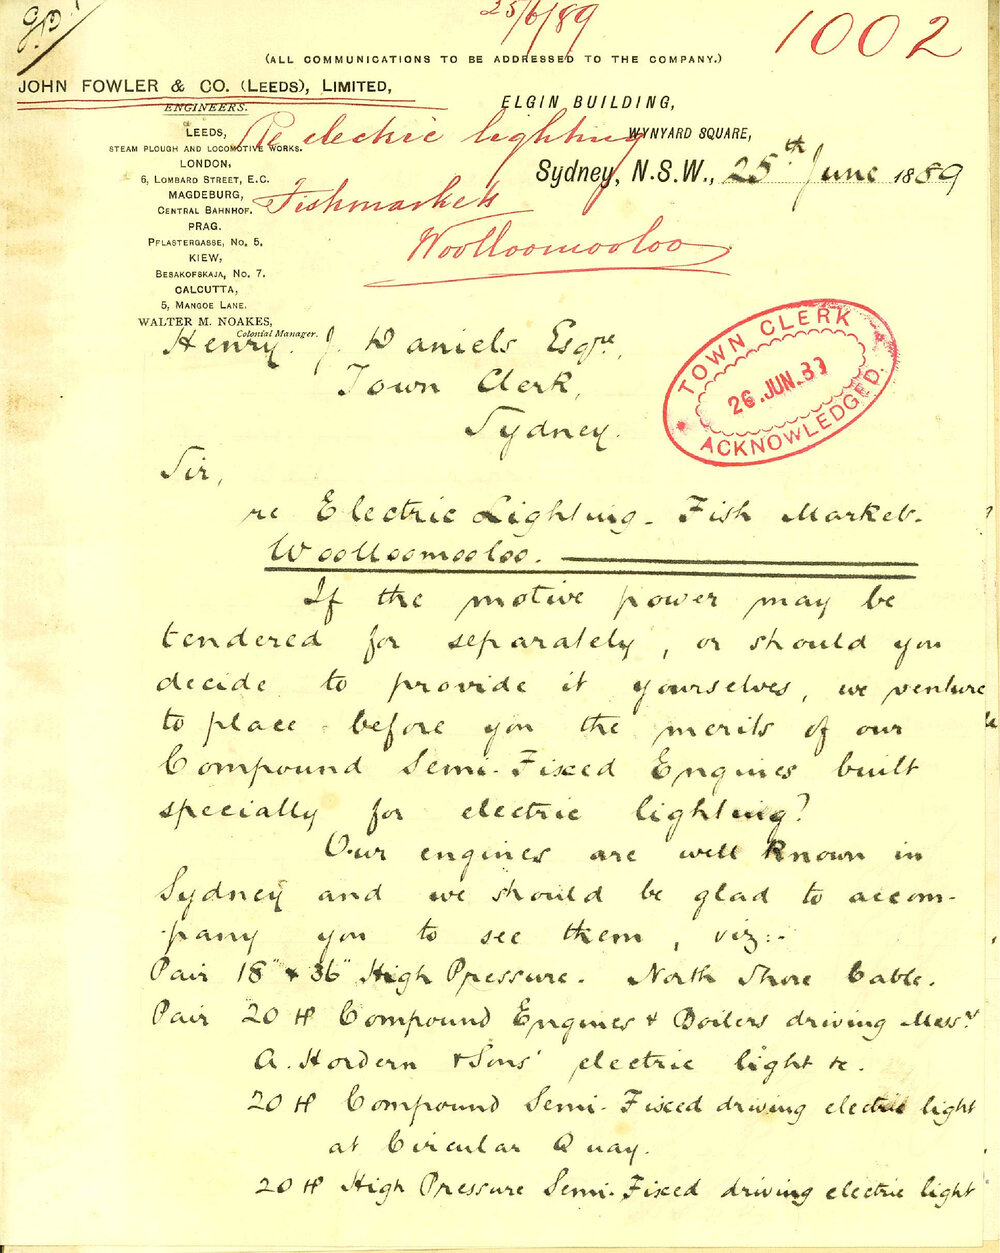 25/6/89
1002
(ALL COMMUNICATIONS TO BE ADDRESSED TO THE COMPANY.)
JOHN FOWLER & CO. (LEEDS), LIMITED,
ENGINEERS.
LEEDS,
STEAM PLOUGH AND LOCOMOTIVE WORKS.
LONDON,
6, LOMBARD STREET, E.C.
MAGDEBURG,
CENTRAL BAHNHOF.
PRAG.
PFLASTERGASSE, No. 5.
KIEW,
BESAKOFSKAJA, No. 7.
CALCUTTA,
5, MANGOE LANE.
WALTER M. NOAKES,
Colonial Manager.
ELGIN BUILDING,
WYNYARD SQUARE,
Sydney, N.S.W., 25th June 1889
Re electric lighting
Fishmarkets
Woolloomooloo
TOWN CLERK
26.JUN.89
ACKNOWLEDGED.
Henry. J. Daniels Esqre,
Town Clerk,
Sydney.
Sir,
re Electric Lighting - Fish Market.
Woolloomooloo.
If the motive power may be
tendered for separately, or should you
decide to provide it yourselves, we venture
to place before you the merits of our
Compound Semi-Fixed Engines built
specially for electric lighting?
Our engines are well known in
Sydney and we should be glad to accom-
pany you to see them, viz:-
Pair 18" & 36" High Pressure. North Shore Cable.
Pair 20 HP Compound Engines & Boilers driving Messrs
A. Hordern & Sons' electric light &c.
20 HP Compound Semi-Fixed driving electric light
at Circular Quay.
20 HP High Pressure Semi-Fixed driving electric light